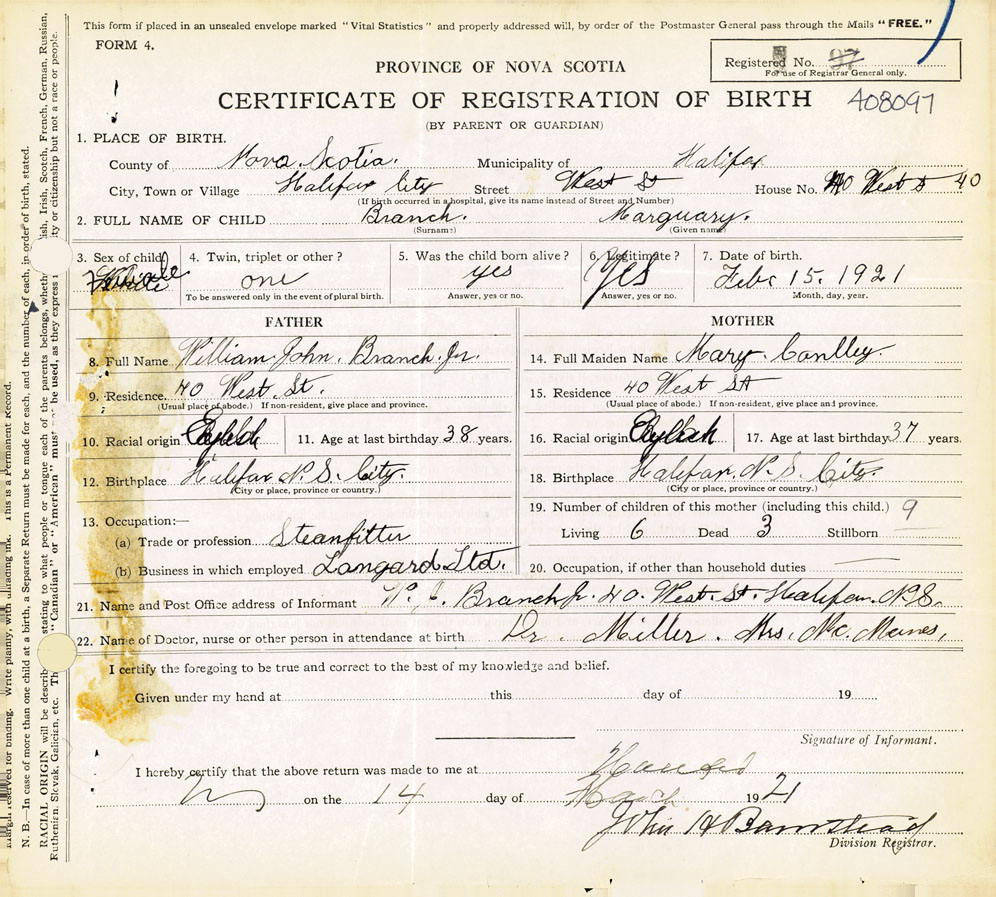 This form if placed in an unsealed envelope marked "Vital Statistics" and properly addressed will, by order of the Postmaster General pass through the Mails "FREE."
FORM 4.
Registered No. 97
For use of Registrar General only.
PROVINCE OF NOVA SCOTIA
CERTIFICATE OF REGISTRATION OF BIRTH 408097
(BY PARENT OR GUARDIAN)
1. PLACE OF BIRTH.
County of Nova Scotia. Municipality of Halifax
City, Town or Village Halifax City Street West St House No. 40 West St 40
(If birth occurred in a hospital, give its name instead of Street and Number)
2. FULL NAME OF CHILD Branch. Marguary.
(Surname) (Given name)
3. Sex of child 4. Twin, triplet or other? 5. Was the child born alive? 6. Legitimate? 7. Date of birth.
Female one yes Yes Feb. 15. 1921
To be answered only in the event of plural birth. Answer, yes or no. Answer, yes or no. Month, day, year.
FATHER MOTHER
8. Full Name William John. Branch. Jr. 14. Full Maiden Name Mary. Conlley.
9. Residence. 40 West. St. 15. Residence 40 West St
(Usual place of abode.) If non-resident, give place and province. (Usual place of abode.) If non-resident, give place and province.
10. Racial origin English 11. Age at last birthday 38 years. 16. Racial origin English 17. Age at last birthday 37 years.
12. Birthplace Halifax N. S. City. 18. Birthplace Halifax. N. S. City.
(City or place, province or country.) (City or place, province or country.)
13. Occupation:—
19. Number of children of this mother (including this child.) 9
(a) Trade or profession Steanfitter Living 6 Dead 3 Stillborn
(b) Business in which employed Langard Ltd. 20. Occupation, if other than household duties
21. Name and Post Office address of Informant W. J. Branch Jr. 40. West. St. Halifax. N.S.
22. Name of Doctor, nurse or other person in attendance at birth Dr. Miller. Mrs, Mc. Manes,
I certify the foregoing to be true and correct to the best of my knowledge and belief.
Given under my hand at this day of 19
Signature of Informant.
I hereby certify that the above return was made to me at
on the 14 day of March 1921
John H Barnstead
Division Registrar.
Margin reserved for binding. Write plainly, with unfading ink. This is a Permanent Record.
N. B.—In case of more than one child at a birth, a Separate Return must be made for each, and the number of each, in order of birth, stated.
RACIAL ORIGIN will be describ stating to what people or tongue each of the parents belongs, wheth ish, Irish, Scotch, French, German, Russian,
Ruthenian, Slovak, Galician, etc. Th "Canadian" or "American" must be used, as they express ty or citizenship but not a race or people.